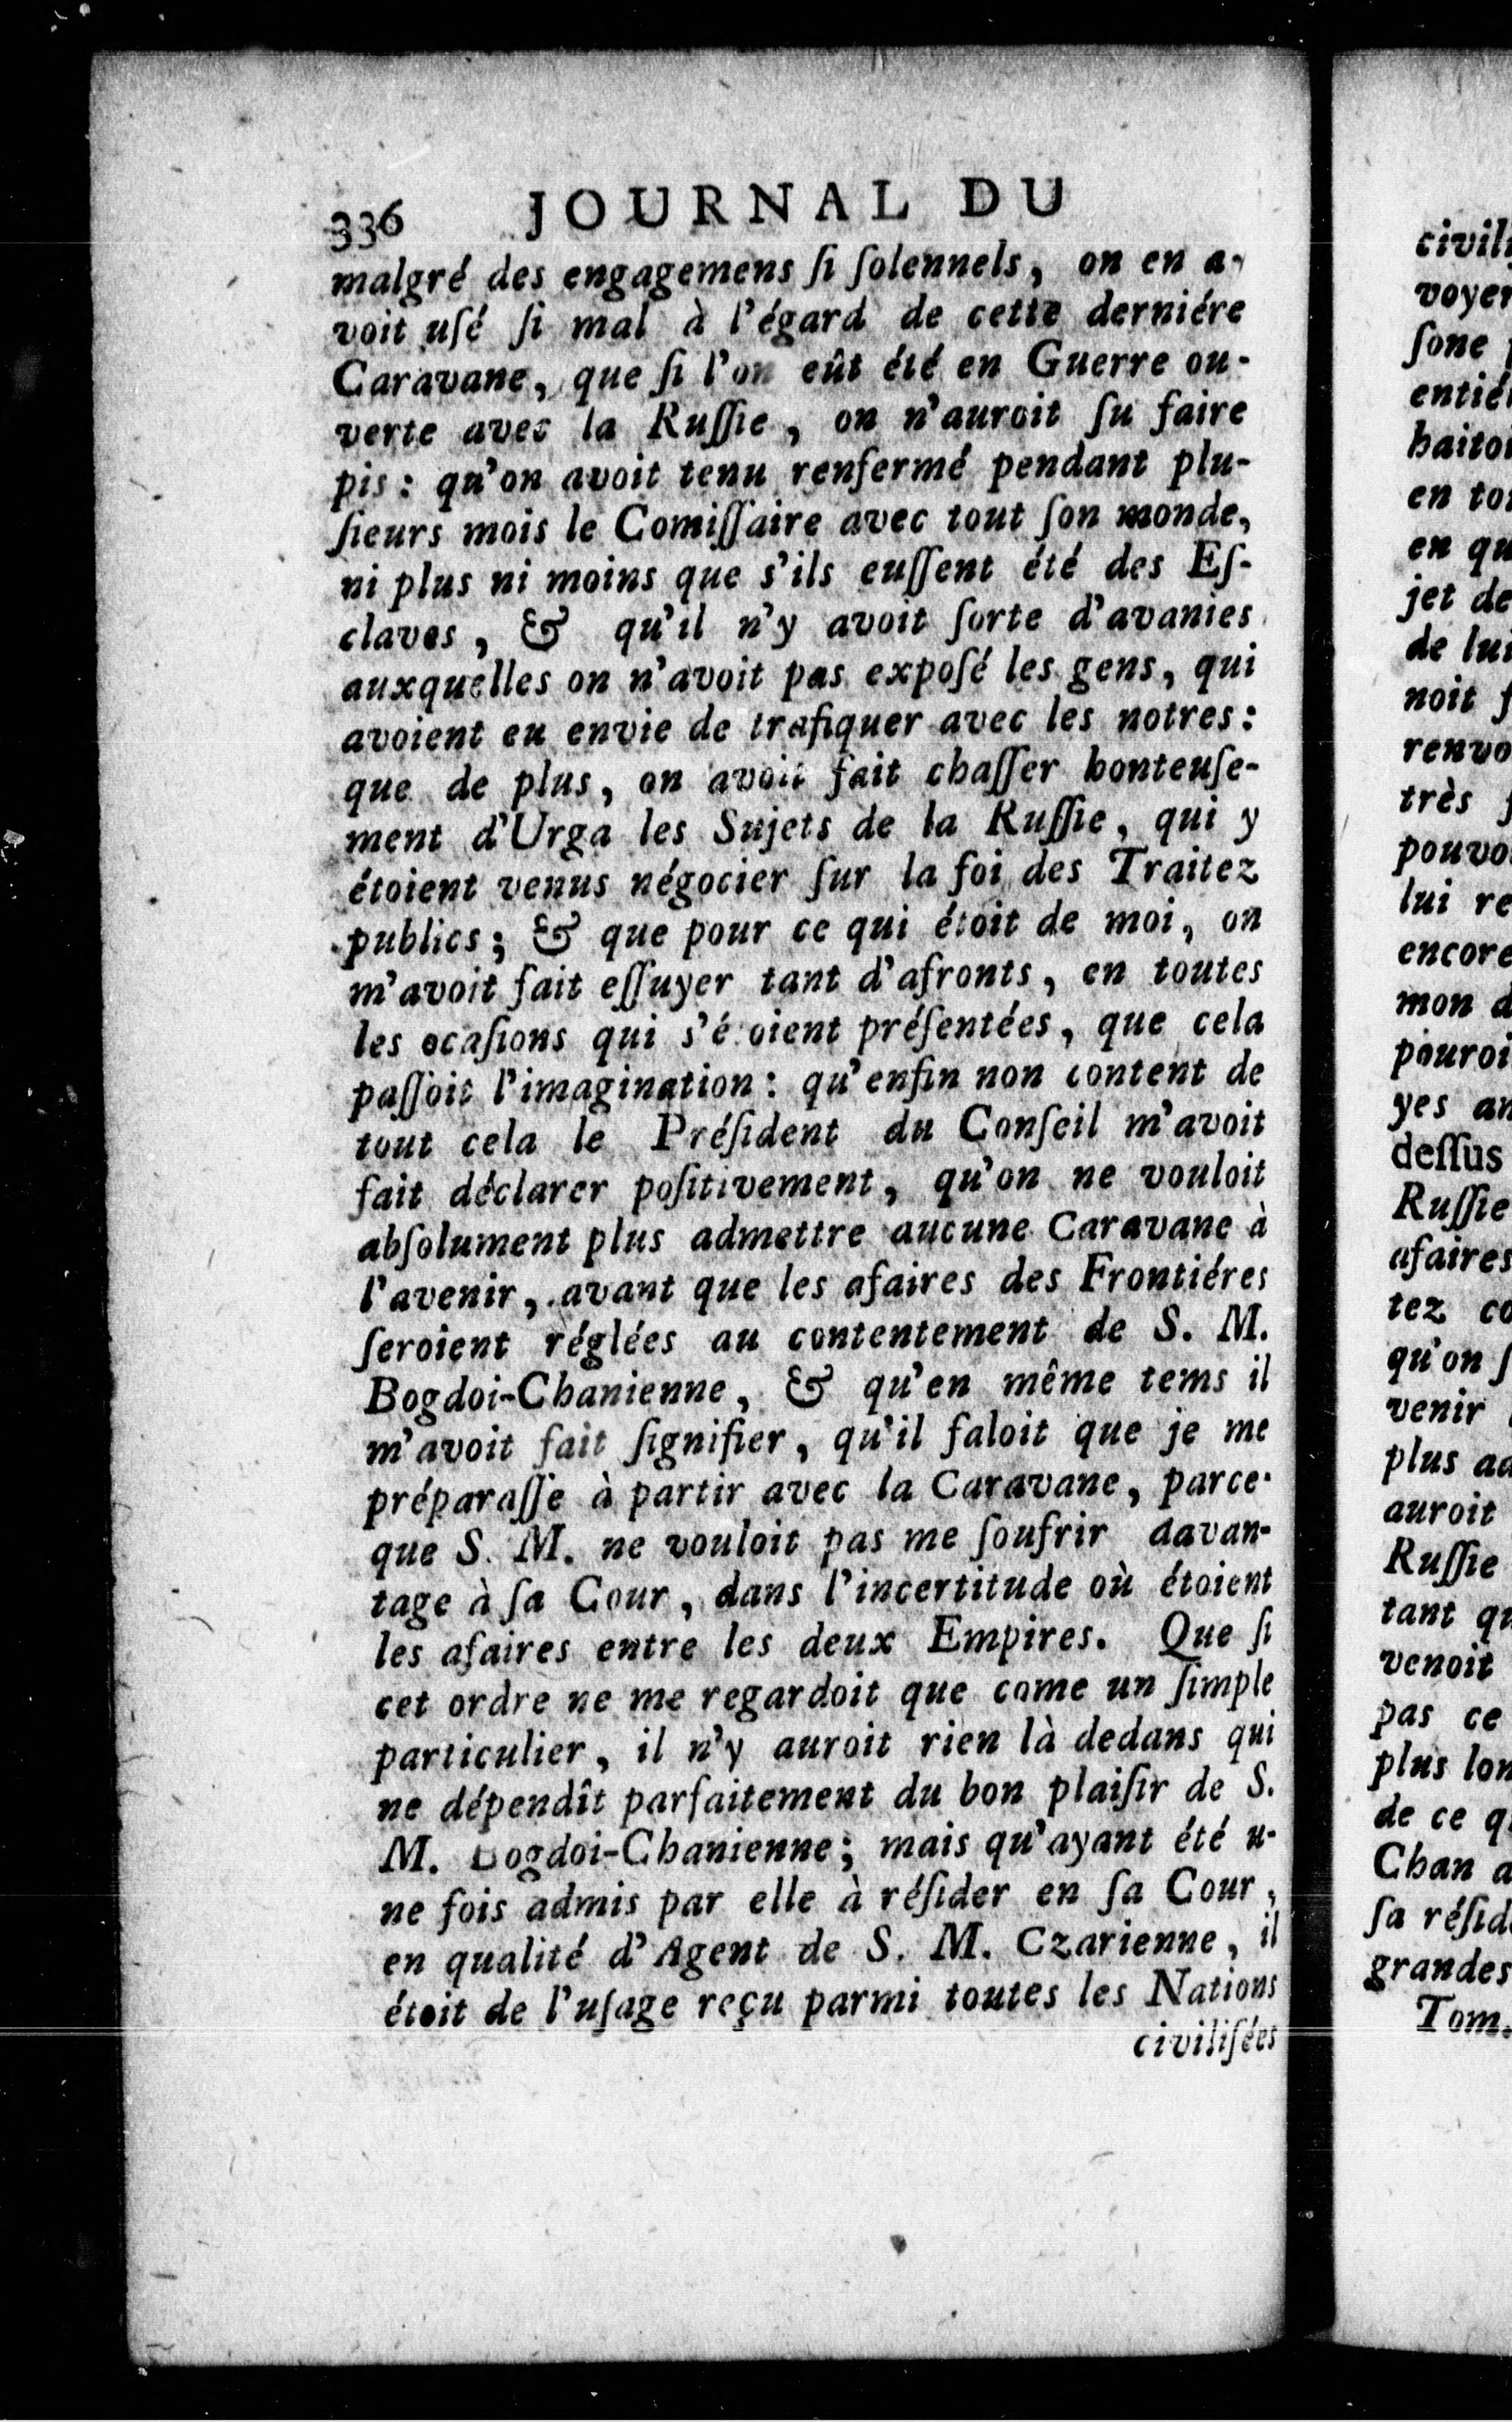 336 JOURNAL DU
malgré des engagemens ſi ſolennels, on en a-
voit uſé ſi mal à l'égard de cette derniére
Caravane, que ſi l'on eût été en Guerre ou-
verte avec la Ruſſie, on n'auroit ſu faire
pis: qu'on avoit tenu renfermé pendant plu-
ſieurs mois le Comiſſaire avec tout ſon monde,
ni plus ni moins que s'ils euſſent été des Eſ-
claves, & qu'il n'y avoit ſorte d'avanies
auxquelles on n'avoit pas expoſé les gens, qui
avoient eu envie de trafiquer avec les notres:
que de plus, on avoit fait chaſſer honteuſe-
ment d'Urga les Sujets de la Ruſſie, qui y
étoient venus négocier ſur la foi des Traitez
publics; & que pour ce qui étoit de moi, on
m'avoit fait eſſuyer tant d'afronts, en toutes
les ocaſions qui s'étoient préſentées, que cela
paſſoit l'imagination: qu'enfin non content de
tout cela le Préſident du Conſeil m'avoit
fait déclarer poſitivement, qu'on ne vouloit
abſolument plus admettre aucune Caravane à
l'avenir, avant que les afaires des Frontiéres
ſeroient réglées au contentement de S. M.
Bogdoi-Chanienne, & qu'en même tems il
m'avoit fait ſignifier, qu'il faloit que je me
préparaſſe à partir avec la Caravane, parce-
que S. M. ne vouloit pas me ſoufrir davan-
tage à ſa Cour, dans l'incertitude où étoient
les afaires entre les deux Empires. Que ſi
cet ordre ne me regardoit que come un ſimple
particulier, il n'y auroit rien là dedans qui
ne dépendît parfaitement du bon plaiſir de S.
M. Bogdoi-Chanienne; mais qu'ayant été u-
ne fois admis par elle à réſider en ſa Cour,
en qualité d'Agent de S. M. Czarienne, il
étoit de l'uſage reçu parmi toutes les Nations
civiliſées
voyer
ſone
en qu
jet de
de lui
noit
très
lui re
encore
mon
yes
deſſus
Ruſſie
afaires
tez
qu'on
venir
plus
auroit
Ruſſie
tant
venoit
pas ce
plus
de ce
Chan
ſa
grandes
Tom.